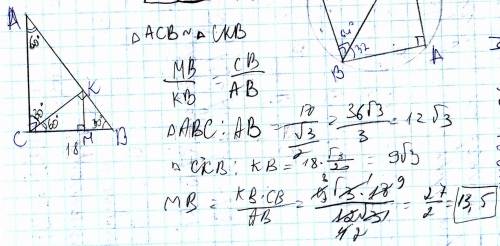 A
60°
K
30°
60°
30°
C
M
B
18
△ACB ~ △CKB
MB/KB = CB/AB
△ABC: AB = 18/(√3/2) = 36√3/3 = 12√3
△CKB: KB = 18·√3/2 = 9√3
MB = KB·CB/AB = 9√3·18/12√3 = 27/2 = 13,5
32
B
A